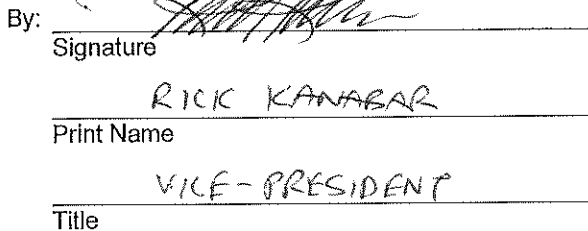 By:
Signature
RICK KANABAR
Print Name
VICE-PRESIDENT
Title